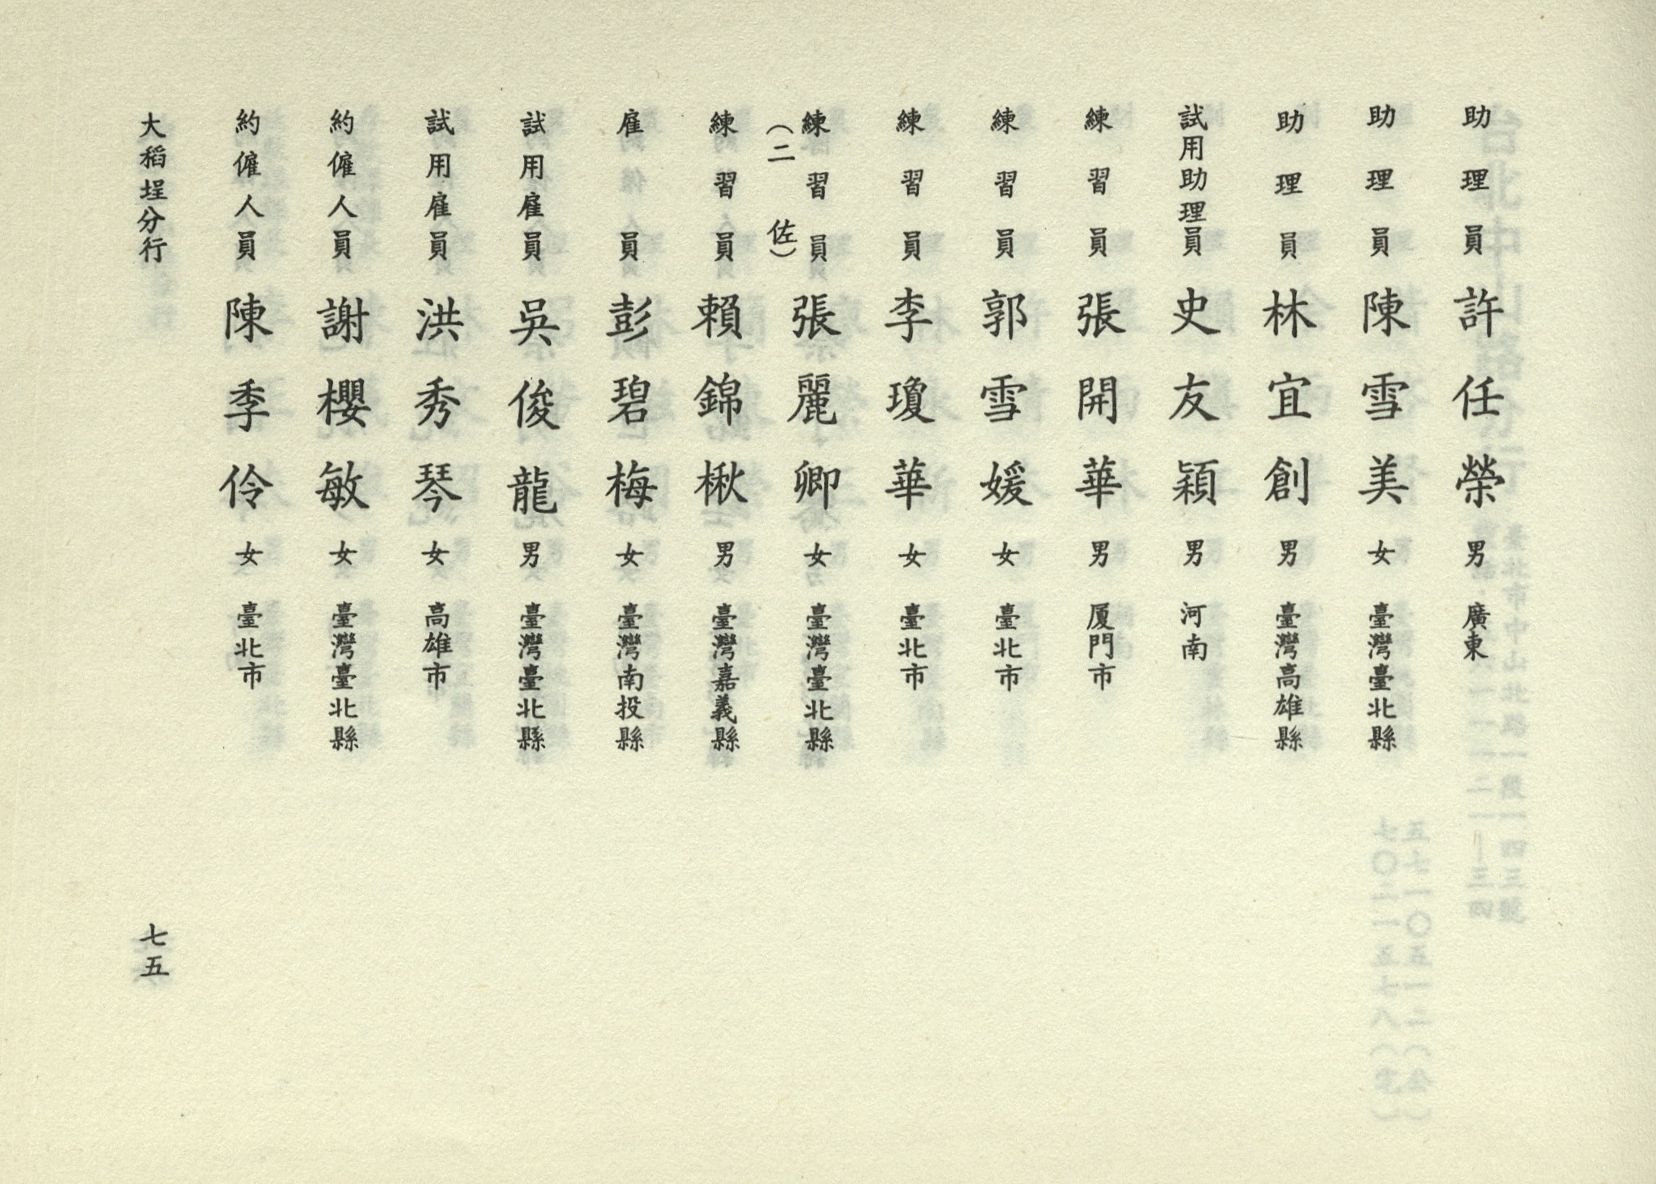 助理員 許任榮 男 廣東
助理員 陳雪美 女 臺灣臺北縣
助理員 林宜創 男 臺灣高雄縣
試用助理員 史友穎 男 河南
練習員 張開華 男 厦門市
練習員 郭雪媛 女 臺北市
練習員 李瓊華 女 臺北市
練習員（二佐） 張麗卿 女 臺灣臺北縣
練習員 賴錦楸 男 臺灣嘉義縣
雇員 彭碧梅 女 臺灣南投縣
試用雇員 吳俊龍 男 臺灣臺北縣
試用雇員 洪秀琴 女 高雄市
約僱人員 謝櫻敏 女 臺灣臺北縣
約僱人員 陳季伶 女 臺北市
大稻埕分行
七五